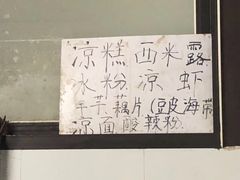 凉糕 西米露
水粉 凉虾
土芋藕片(豆皮海带
凉面酸辣粉